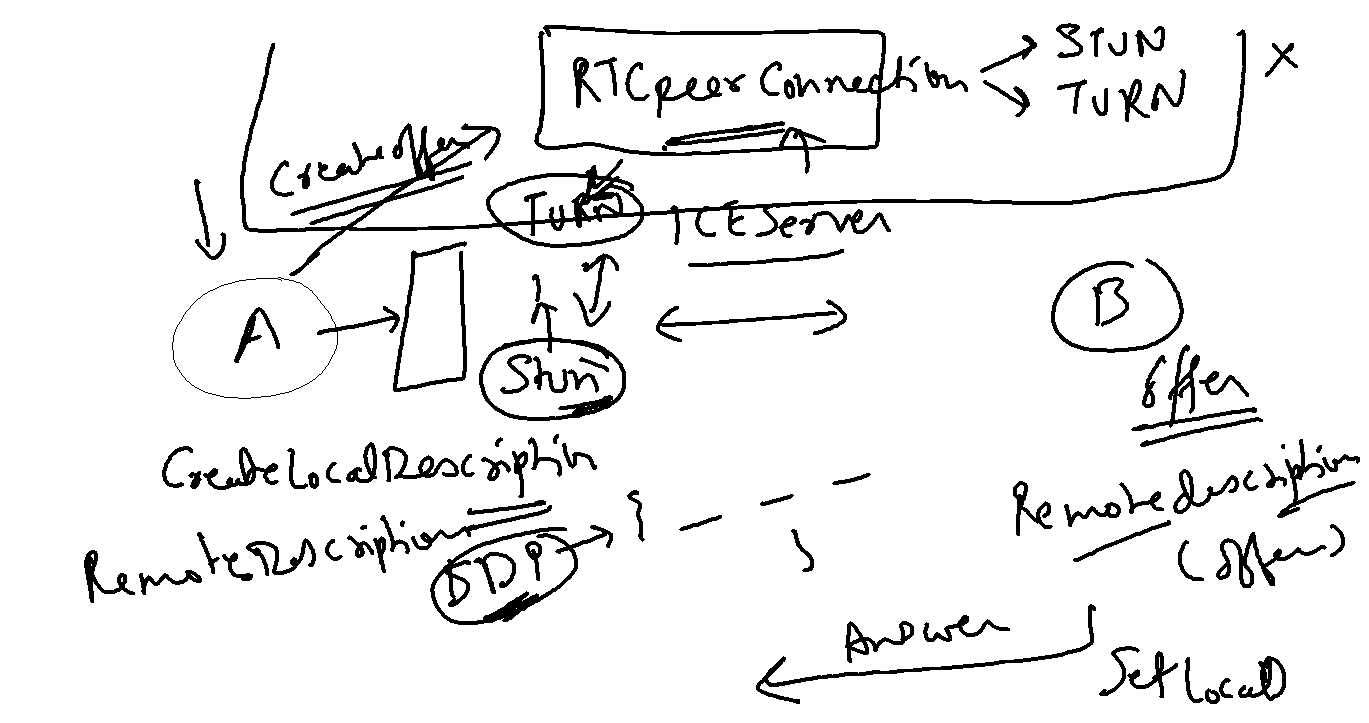 RTCpeerConnection
STUN
TURN
X
Createoffer
TURN
ICEServer
A
B
Stun
offer
CreateLocalDescription
RemoteDescription
SDP
{ - - - }
Remotedescription
(offer)
Answer
SetLocalD